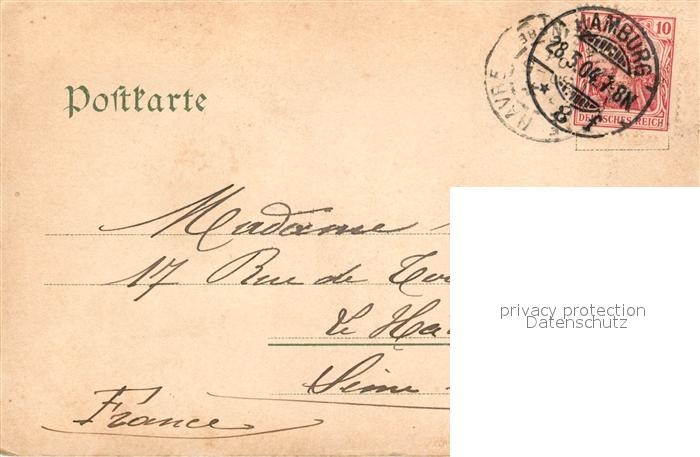 Postkarte
HAMBURG
28.3.04.7-8N
* 8f *
HAVRE
10
DEUTSCHES REICH
Madame
17 Rue de
Le
Seine
France
privacy protection
Datenschutz